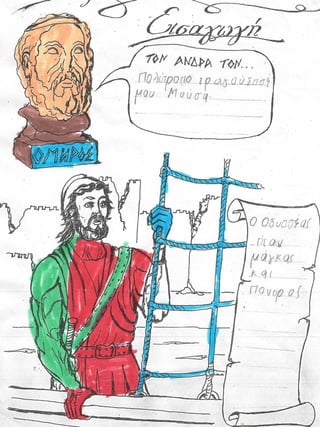 Εισαγωγή
ΤΟΝ ΑΝΔΡΑ ΤΟΝ...
Πολύτροπο τραγούδησε
μου Μουσα
ΟΜΗΡΟΣ
Ο Οδυσσέας
ήταν
μάγκας
και
Πονηρος